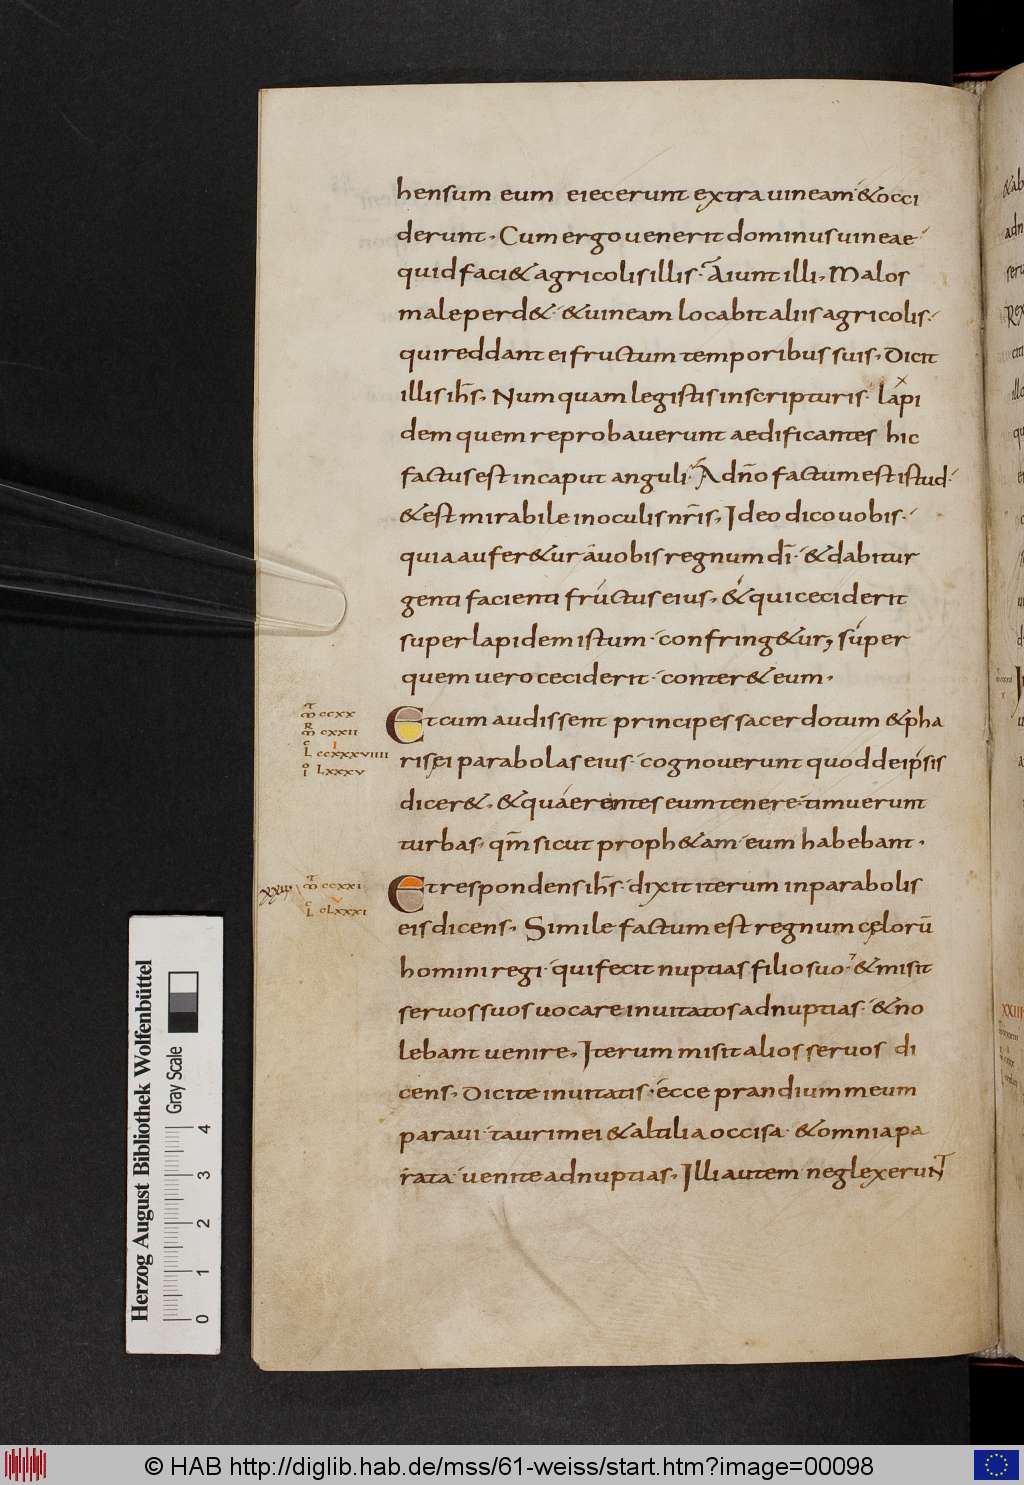 hensum eum eiecerunt extra uineam· & occi
derunt. Cum ergo uenerit dominus uineae
quid faci& agricolis illis. Aiunt illi. Malos
male perd&· & uineam locabit aliis agricolis.
qui reddant ei fructum temporibus suis. Dicit
illis ihs̄. Numquam legistis in scripturis· lapi
dem quem reprobauerunt aedificantes hic
factus est in caput anguli. A dn̄o factum est istud·
& est mirabile in oculis nr̄is. Ideo dico uobis.
quia aufer&ur a uobis regnum dī· & dabitur
genti facienti fructus eius. & qui ceciderit
super lapidem istum· confring&ur, super
quem uero ceciderit· conter& eum.
Et cum audissent principes sacerdotum & pha
risęi parabolas eius· cognouerunt quod de ipsis
dicer&. & quaerentes eum tenere· timuerunt
turbas· qm̄ sicut proph&am eum habebant.
Et respondens ihs̄· dixit iterum in parabolis
eis dicens. Simile factum est regnum cęlorū
homini regi· qui fecit nuptias filio suo· & misit
seruos suos uocare inuitatos ad nuptias· & no
lebant uenire. Iterum misit alios seruos di
cens. Dicite inuitatis· ecce prandium meum
paraui· tauri mei & altilia occisa· & omnia pa
rata· uenite ad nuptias. Illi autem neglexerunt
ccxx
cxxii
L ccxxxviiii
Lxxxv
ccxxi
L cLxxxi
Herzog August Bibliothek Wolfenbüttel
Gray Scale
0 1 2 3 4
© HAB http://diglib.hab.de/mss/61-weiss/start.htm?image=00098